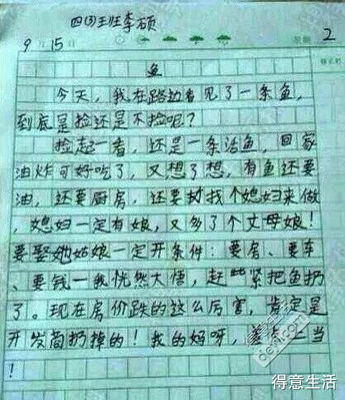 四(3)班李硕
9月15日 星期2
鱼
今天,我在路边看见了一条鱼,
到底是捡还是不捡呢?
捡起一看,还是一条活鱼,回家
油炸可好吃了,又想了想,有鱼还要
油,还要厨房,还要找个媳妇来做
,媳妇一定有娘,又多了个丈母娘!
要娶她姑娘一定开条件:要房、要车
、要钱—我恍然大悟,赶紧把鱼扔
了。现在房价跌的这么厉害,肯定是
开发商扔掉的!我的妈呀,差点上当
!
得意生活